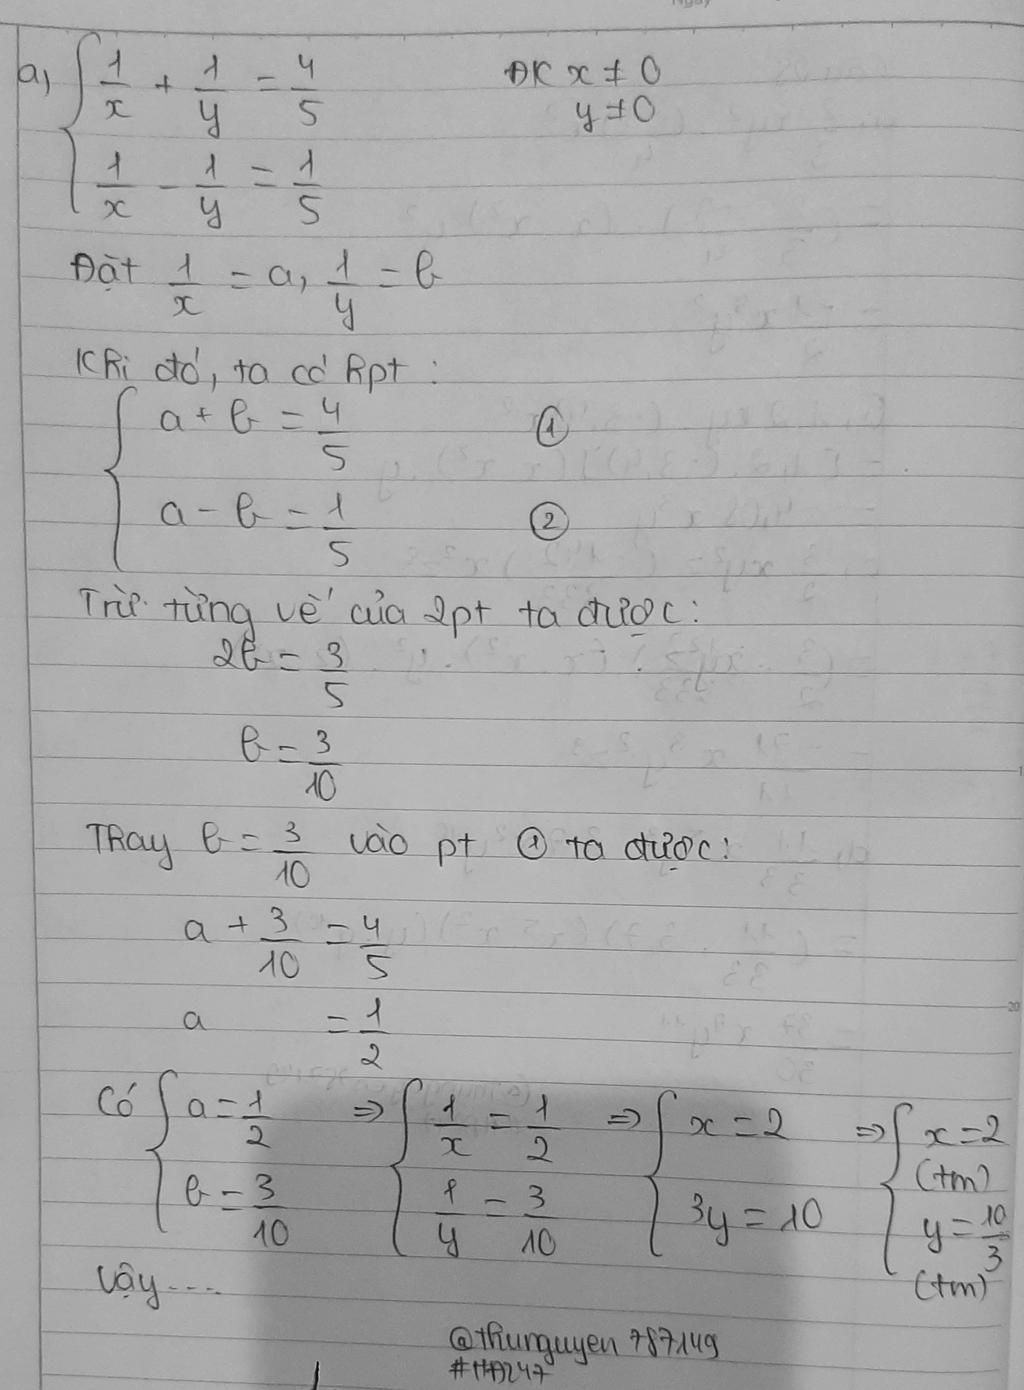 a, { 1/x + 1/y = 4/5 ĐK x ≠ 0
y ≠ 0
1/x - 1/y = 1/5
Đặt 1/x = a, 1/y = b
Khi đó, ta có hpt :
{ a + b = 4/5 ①
a - b = 1/5 ②
Trừ từng vế của 2pt ta được:
2b = 3/5
b = 3/10
Thay b = 3/10 vào pt ① ta được:
a + 3/10 = 4/5
a = 1/2
Có { a = 1/2 => { 1/x = 1/2 => { x = 2 => { x = 2
(tm)
b = 3/10 1/y = 3/10 3y = 10 y = 10/3
(tm)
Vậy ....
@thunguyen 787149